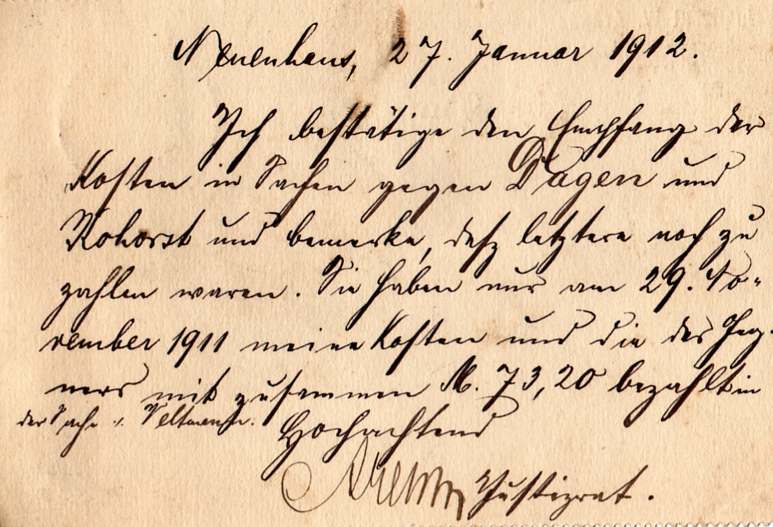 Neuenhaus, 27. Januar 1912.
Ich bestätige den Empfang der
Kosten in Sachen gegen Dagen und
Rohorst und bemerke, daß letztere noch zu
zahlen waren. Sie haben nur am 29. No-
vember 1911 meine Kosten und die des Geg-
ners mit zusammen M. 73,20 bezahlt in
der Sache
Hochachtend
Justizrat.